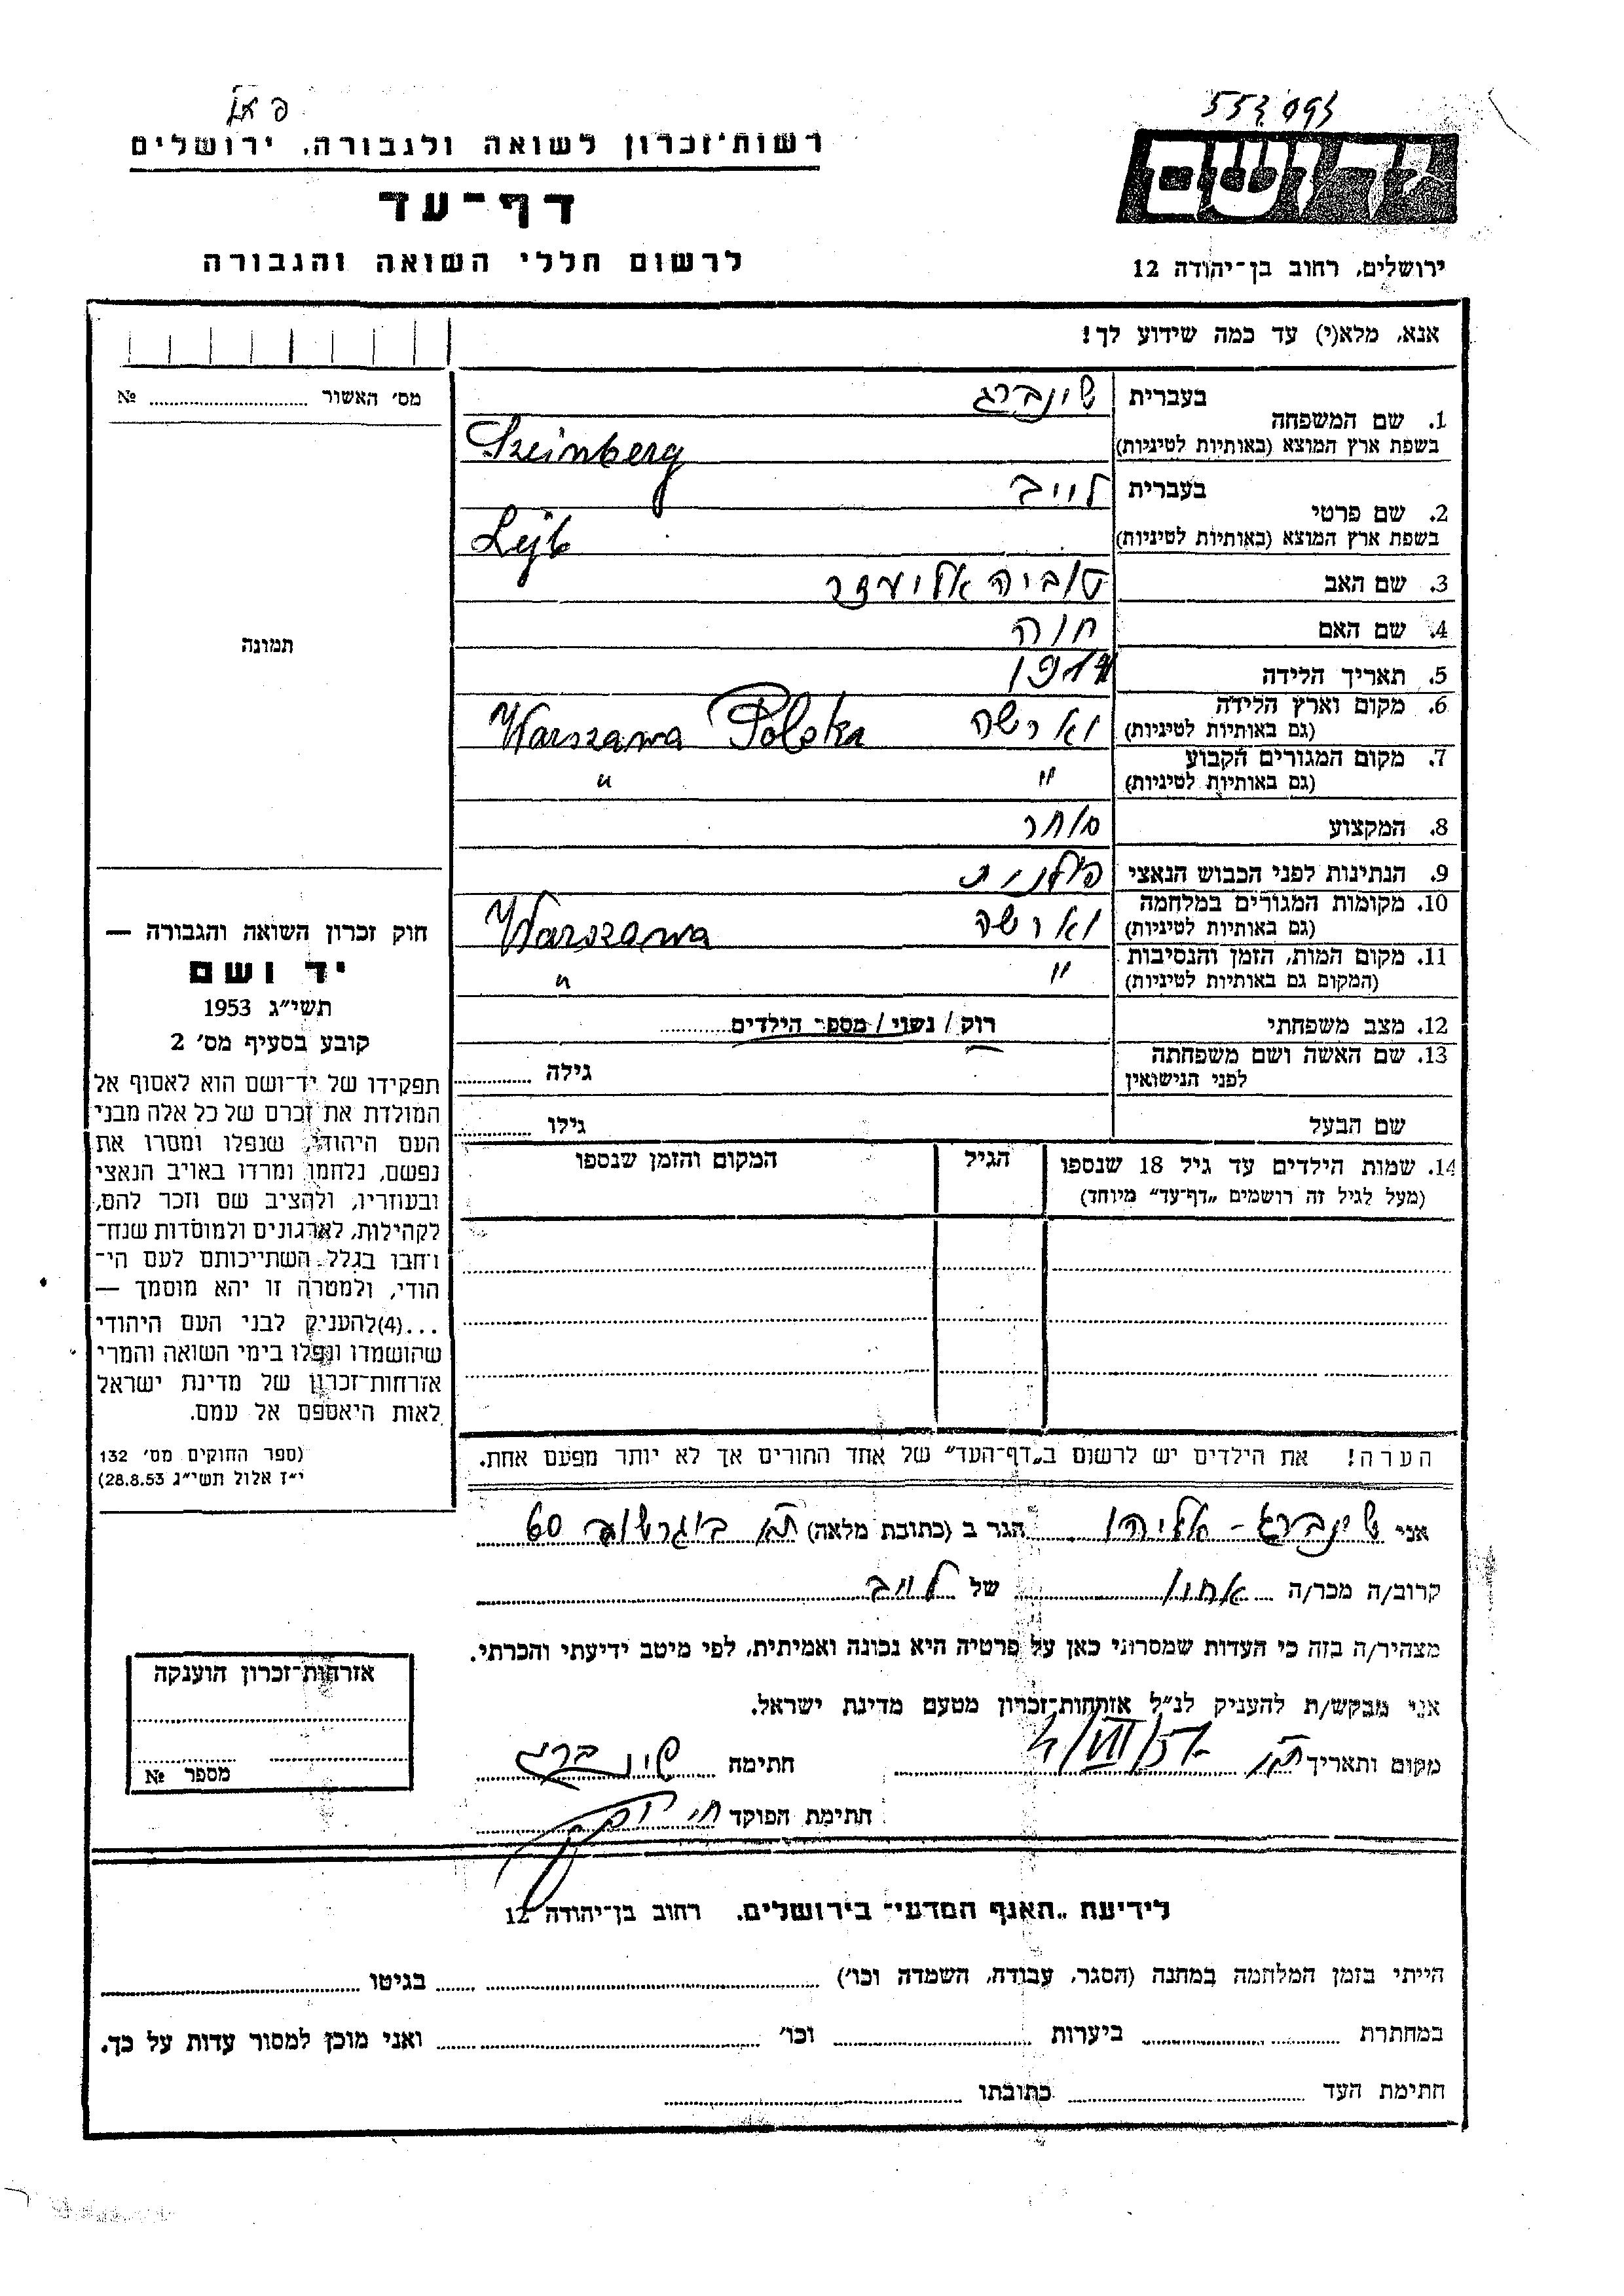 רשות־זכרון לשואה ולגבורה, ירושלים
דף־עד
לרשום חללי השואה והגבורה
יד ושם
ירושלים, רחוב בן־יהודה 12
אנא, מלא(י) עד כמה שידוע לך!
מס׳ האשור № 
בעברית שינברג
1. שם המשפחה
בשפת ארץ המוצא (באותיות לטיניות) Szeinberg
בעברית לייב
2. שם פרטי
בשפת ארץ המוצא (באותיות לטיניות) Lejb
3. שם האב טוביה אליעזר
4. שם האם חוה
5. תאריך הלידה
6. מקום וארץ הלידה
(גם באותיות לטיניות) וארשה Warszawa Polska
7. מקום המגורים הקבוע
(גם באותיות לטיניות) " "
8. המקצוע סוחר
9. הנתינות לפני הכבוש הנאצי פולנית
10. מקומות המגורים במלחמה
(גם באותיות לטיניות) וארשה Warszawa
11. מקום המות, הזמן והנסיבות
(המקום גם באותיות לטיניות) " "
12. מצב משפחתי רוק / נשוי / מספר הילדים
13. שם האשה ושם משפחתה
לפני הנישואין גילה
שם הבעל גילו
14. שמות הילדים עד גיל 18 שנספו הגיל המקום והזמן שנספו
(מעל לגיל זה רושמים „דף־עד" מיוחד)
תמונה
חוק זכרון השואה והגבורה —
יד ושם
תשי״ג 1953
קובע בסעיף מס׳ 2
תפקידו של יד־ושם הוא לאסוף אל
המולדת את זכרם של כל אלה מבני
העם היהודי, שנפלו ומסרו את
נפשם, נלחמו ומרדו באויב הנאצי
ובעוזריו, ולהציב שם וזכר להם,
לקהילות, לארגונים ולמוסדות שנח־
רחבו בגלל השתייכותם לעם הי־
הודי, ולמטרה זו יהא מוסמך —
...(4)להעניק לבני העם היהודי
שהושמדו ונפלו בימי השואה והמרי
אזרחות־זכרון של מדינת ישראל
לאות היאספם אל עמם.
(ספר החוקים מס׳ 132
י״ז אלול תשי״ג 28.8.53)
הערה! את הילדים יש לרשום ב„דף־העד" של אחד ההורים אך לא יותר מפעם אחת.
אני שינברג - אליהו הגר ב (כתובת מלאה) ת״א בוגרשוב 60
קרוב/ה מכר/ה אחיו של לייב
מצהיר/ה בזה כי העדות שמסרתי כאן על פרטיה היא נכונה ואמיתית, לפי מיטב ידיעתי והכרתי.
אני מבקש/ת להעניק לנ״ל אזרחות־זכרון מטעם מדינת ישראל.
מקום ותאריך ת״א חתימה שינברג
חתימת הפוקד
אזרחות־זכרון הוענקה
מספר №
לידיעת „האגף המדעי״ בירושלים, רחוב בן־יהודה 12
הייתי בזמן המלחמה במחנה (הסגר, עבודה, השמדה וכו׳) בגיטו
במחתרת ביערות וכו׳ ואני מוכן למסור עדות על כך.
חתימת העד כתובתו